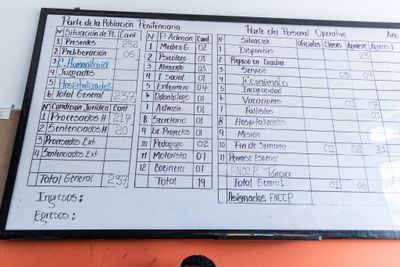 Parte de la Población Penitenciaria
Nº Situación de P.L. Cant
1 Presentes 232
2 Preliberación 05
3 C. Humanitaria
4 Juzgados
5 Hospitalizados
6 Total General 237
Nº Condición Jurídica Cant
1 Procesados H 217
2 Sentenciados H 20
3 Procesados Ext
4 Sentenciados Ext
Total General 237
Ingresos:
Egresos:
Nº P. Admon Cant
1 Medico G 02
2 Psicologo 01
3 Abogado 05
4 T. Social 01
5 Enfermero 04
6 Odontologo 01
7 Admon 01
8 Secretario 01
9 de Proyectos 01
10 Pedagogo 02
11 Motorista 01
12 Cocinera 01
Total 19
Parte del Personal Operativo
Nº Situación Oficiales Clases
1 Disponible
2 Repaso en Cuadra
3 Servicio 03 04
4 Economato
5 Incapacidad
6 Vacaciones 01
7 Faltistas 01
8 Hospitalizados
9 Misión
10 Fin de Semana 01 02
11 Permiso Especial
FNCCP
Total General 01 06
Asignados FNCCP